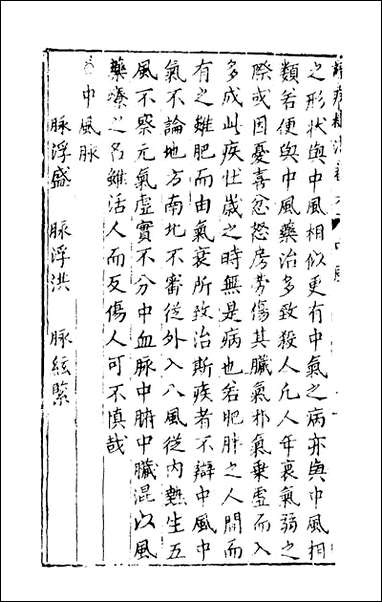 之形狀與中風相似更有中氣之病亦與中風相
類若便與中風藥治多致殺人凡人年衰氣弱之
際或因憂喜忿怒房勞傷其臟氣邪氣乗虛而入
多成此疾壮歲之時無是病也若肥胖之人間而
有之雖肥而由氣衰所致治斯疾者不辯中風中
氣不論地方南北不審從外入八風從内熱生五
風不察元氣虛實不分中血脉中腑中臟混以風
藥療之名雖活人而反傷人可不慎哉
中風脉
脉浮盛　脉浮洪　脉絃緊